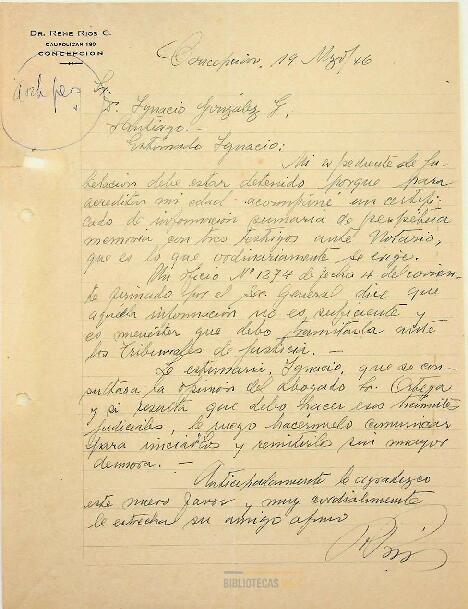 DR. RENE RIOS C.
CAUPOLICAN 190
CONCEPCION
Concepcion, 19 Mzo/46
Sr.
Dr. Ignacio González G.
Santiago.-
Estimado Ignacio:
Mi expediente de ju-
bilacion debe estar detenido porque para
acreditar mi edad acompañé un certifi-
cado de informacion sumaria de perpetua
memoria con tres testigos ante Notario,
que es lo que ordinariamente se exige.
Un oficio N° 1374 de fecha 4 del corrien-
te firmado por el Sec. General dice que
aquella informacion no es suficiente y
es menester que debo tramitarla ante
los Tribunales de Justicia. -
Le estimaria, Ignacio, que se con-
sultara la opinion del abogado Sr. Ortega
y si resulta que debo hacer esos trámites
judiciales, le ruego hacérmelo comunicar
para iniciarlos y remitirlos sin mayor
demora. -
Anticipadamente le agradezco
este nuevo favor y muy cordialmente
le estrecha su amigo afmo
BIBLIOTECAS